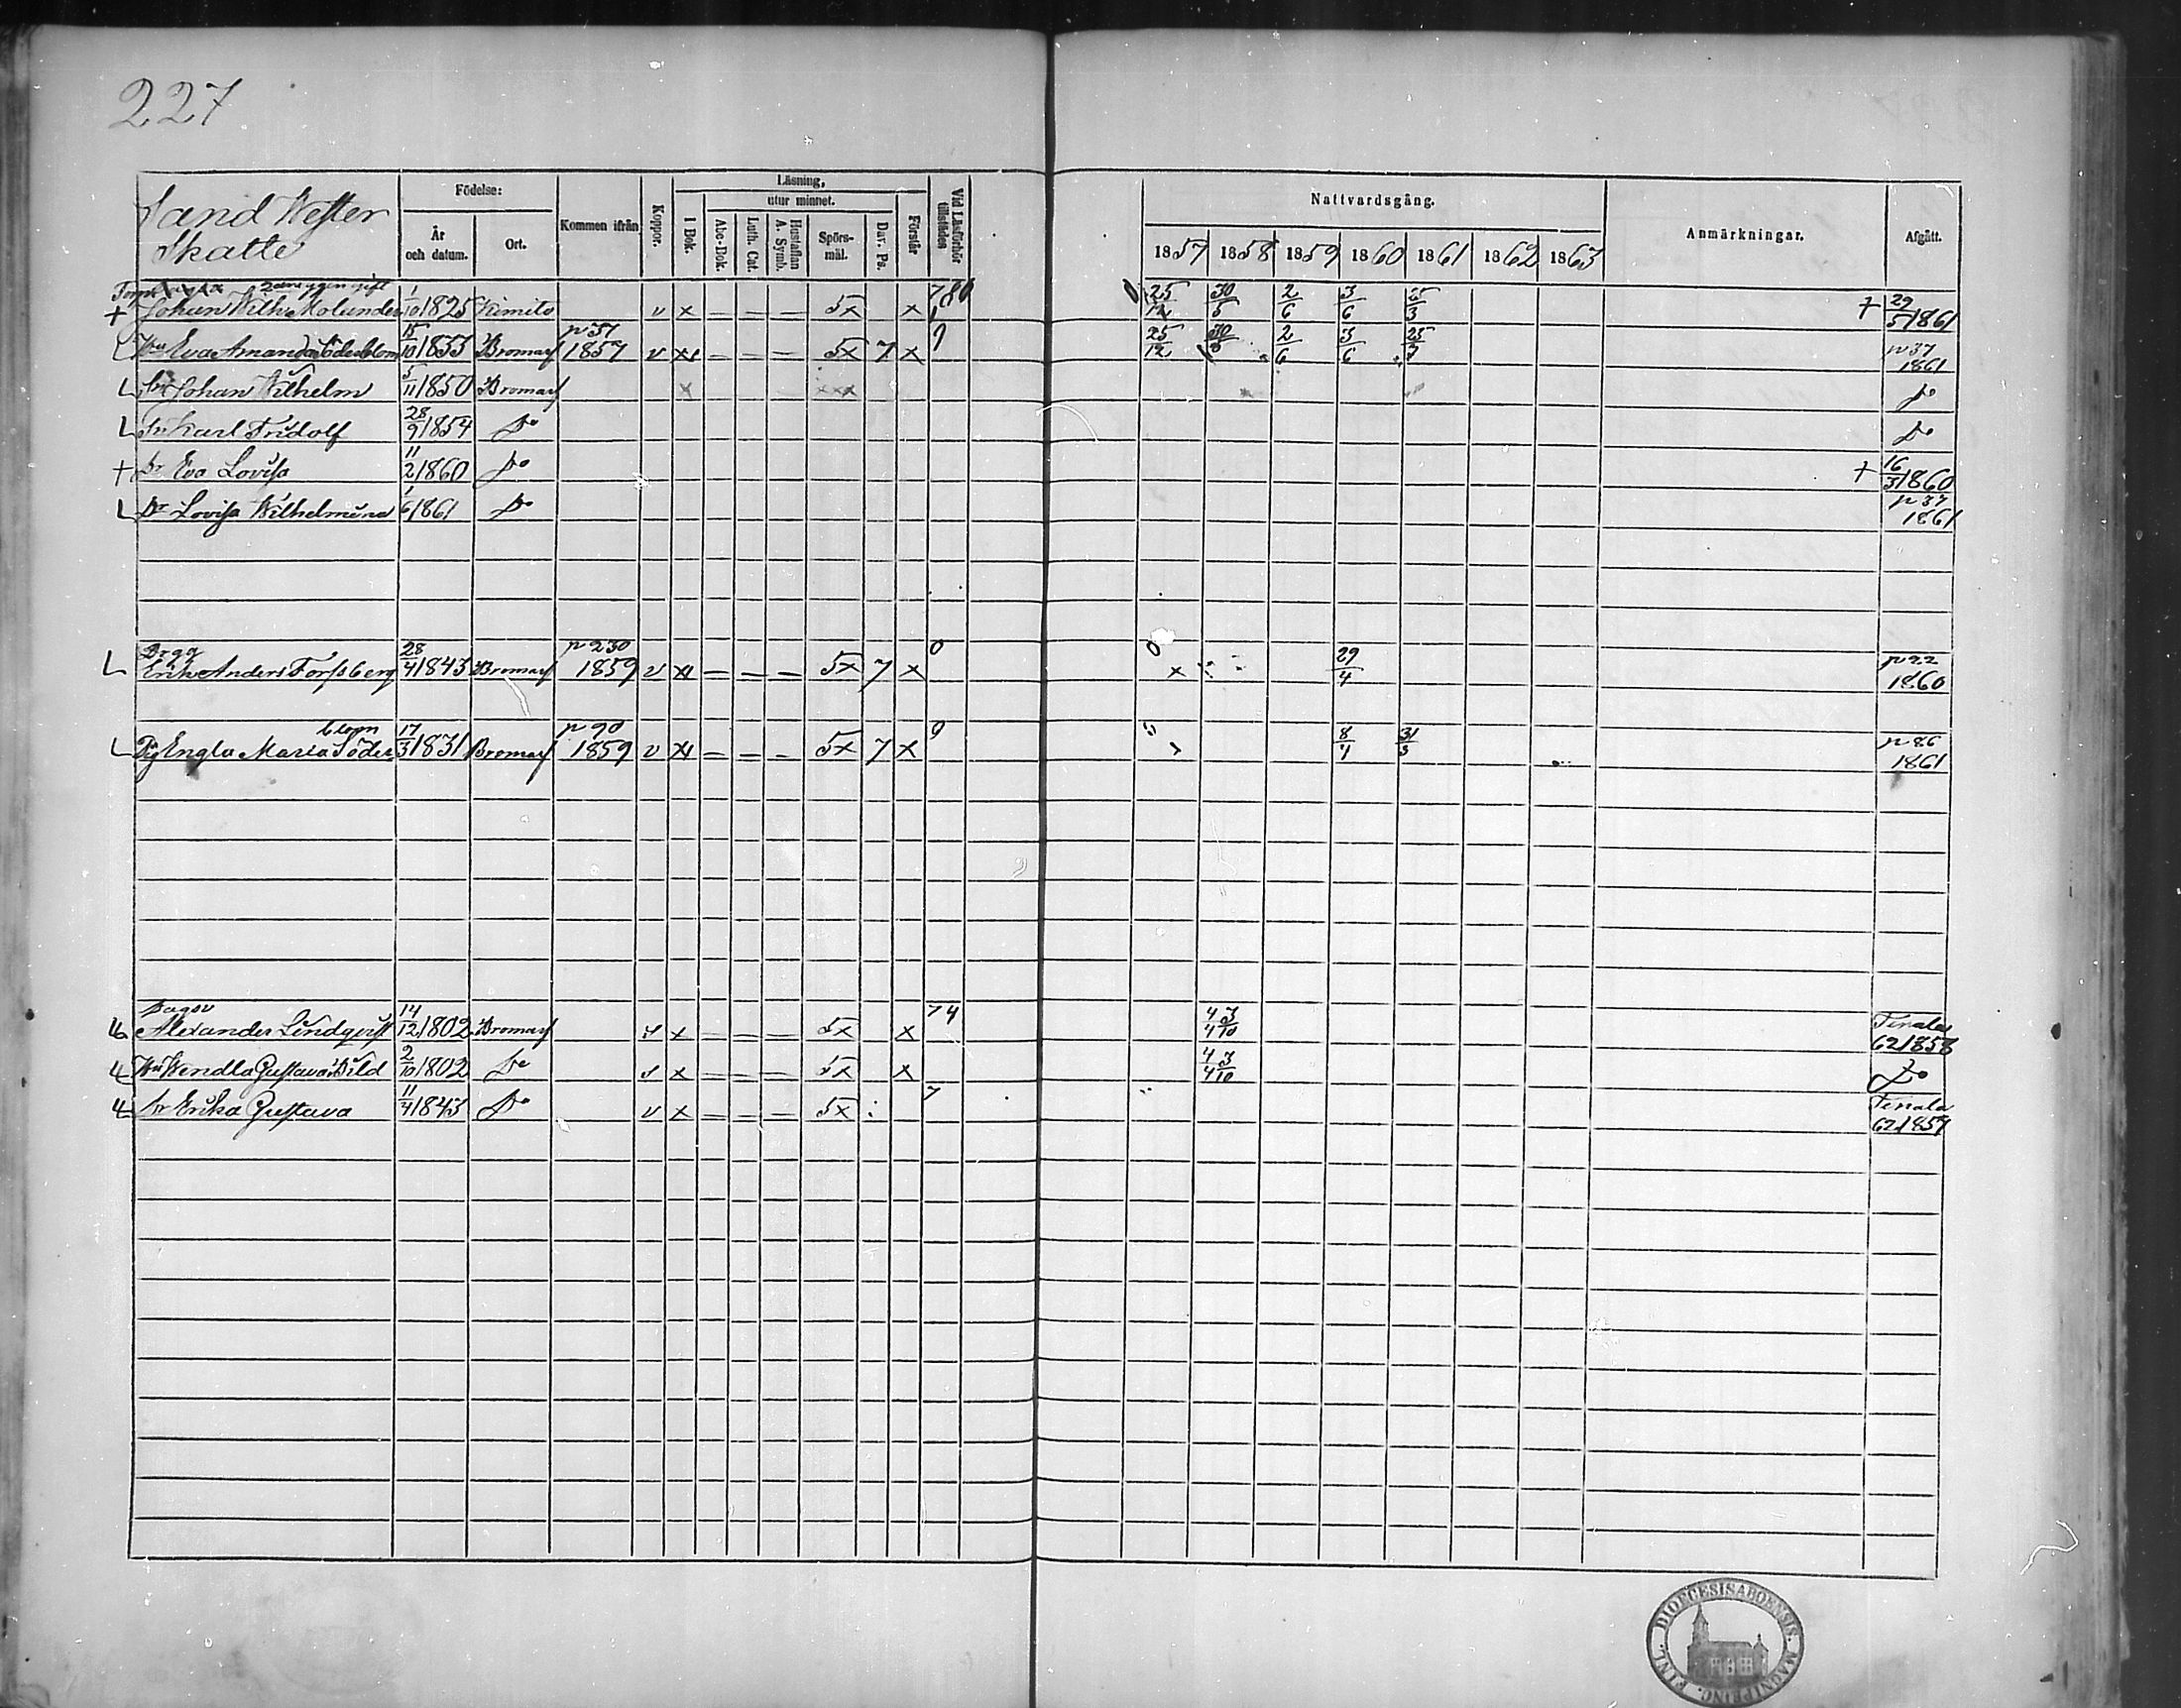 227
Sand Wester
Skatte
Födelse:
År och datum.
Ort.
Kommen ifrån
Koppor.
Läsning,
I Bok.
utur minnet.
Abc-Bok.
Luth. Cat.
Hustaflan A. Symb.
Spörs-mål.
Dav. Ps.
Förstår
Vid Läsförhör tillstädes
Nattvardsgång.
1857 1858 1859 1860 1861 1862 1863
Anmärkningar.
Afgått.
+ Johan Wilh. Molander 1/10 1825 Kimito v x — — — 5x x 25/12 30/5 2/6 3/6 + 29/5 1861
Hu Eva Amanda Söderblom 15/10 1833 Bromarf p 37 1857 v x — — — 5x 7 x 25/12 2/6 3/6 p 37 1861
L Sr Johan Wilhelm 5/11 1850 Bromarf x xxx Do
L Sn Karl Fridolf 28/9 1854 Do Do
+ Dr Eva Lovisa 11/2 1860 Do + 16/3 1860
L Dr Lovisa Wilhelmina 1/6 1861 Do p 37 1861
Drgg
L Erik Anders Forssberg 28/4 1843 Bromarf p 230 1859 v x — — — 5x 7 x 0 0 x 29/4 p 22 1860
blom
L Pig Engla Maria Söder 17/3 1831 Bromarf p 90 1859 v x — — — 5x 7 x 31/3 p 86 1861
Alexander Lindqvist 14/12 1802 Bromarf x — — — 5x x 74 4/4 3/10 Tenala 62 1858
Hu Wendla Gustava Wild 2/10 1802 Do x — — — 5x x 4/4 3/10 Do
Dr Erika Gustava 11/4 1843 Do v x — — — 5x 7 Tenala 62 1857
FINL. DIOECESIS ABOENSIS. MAGNI PRINC.